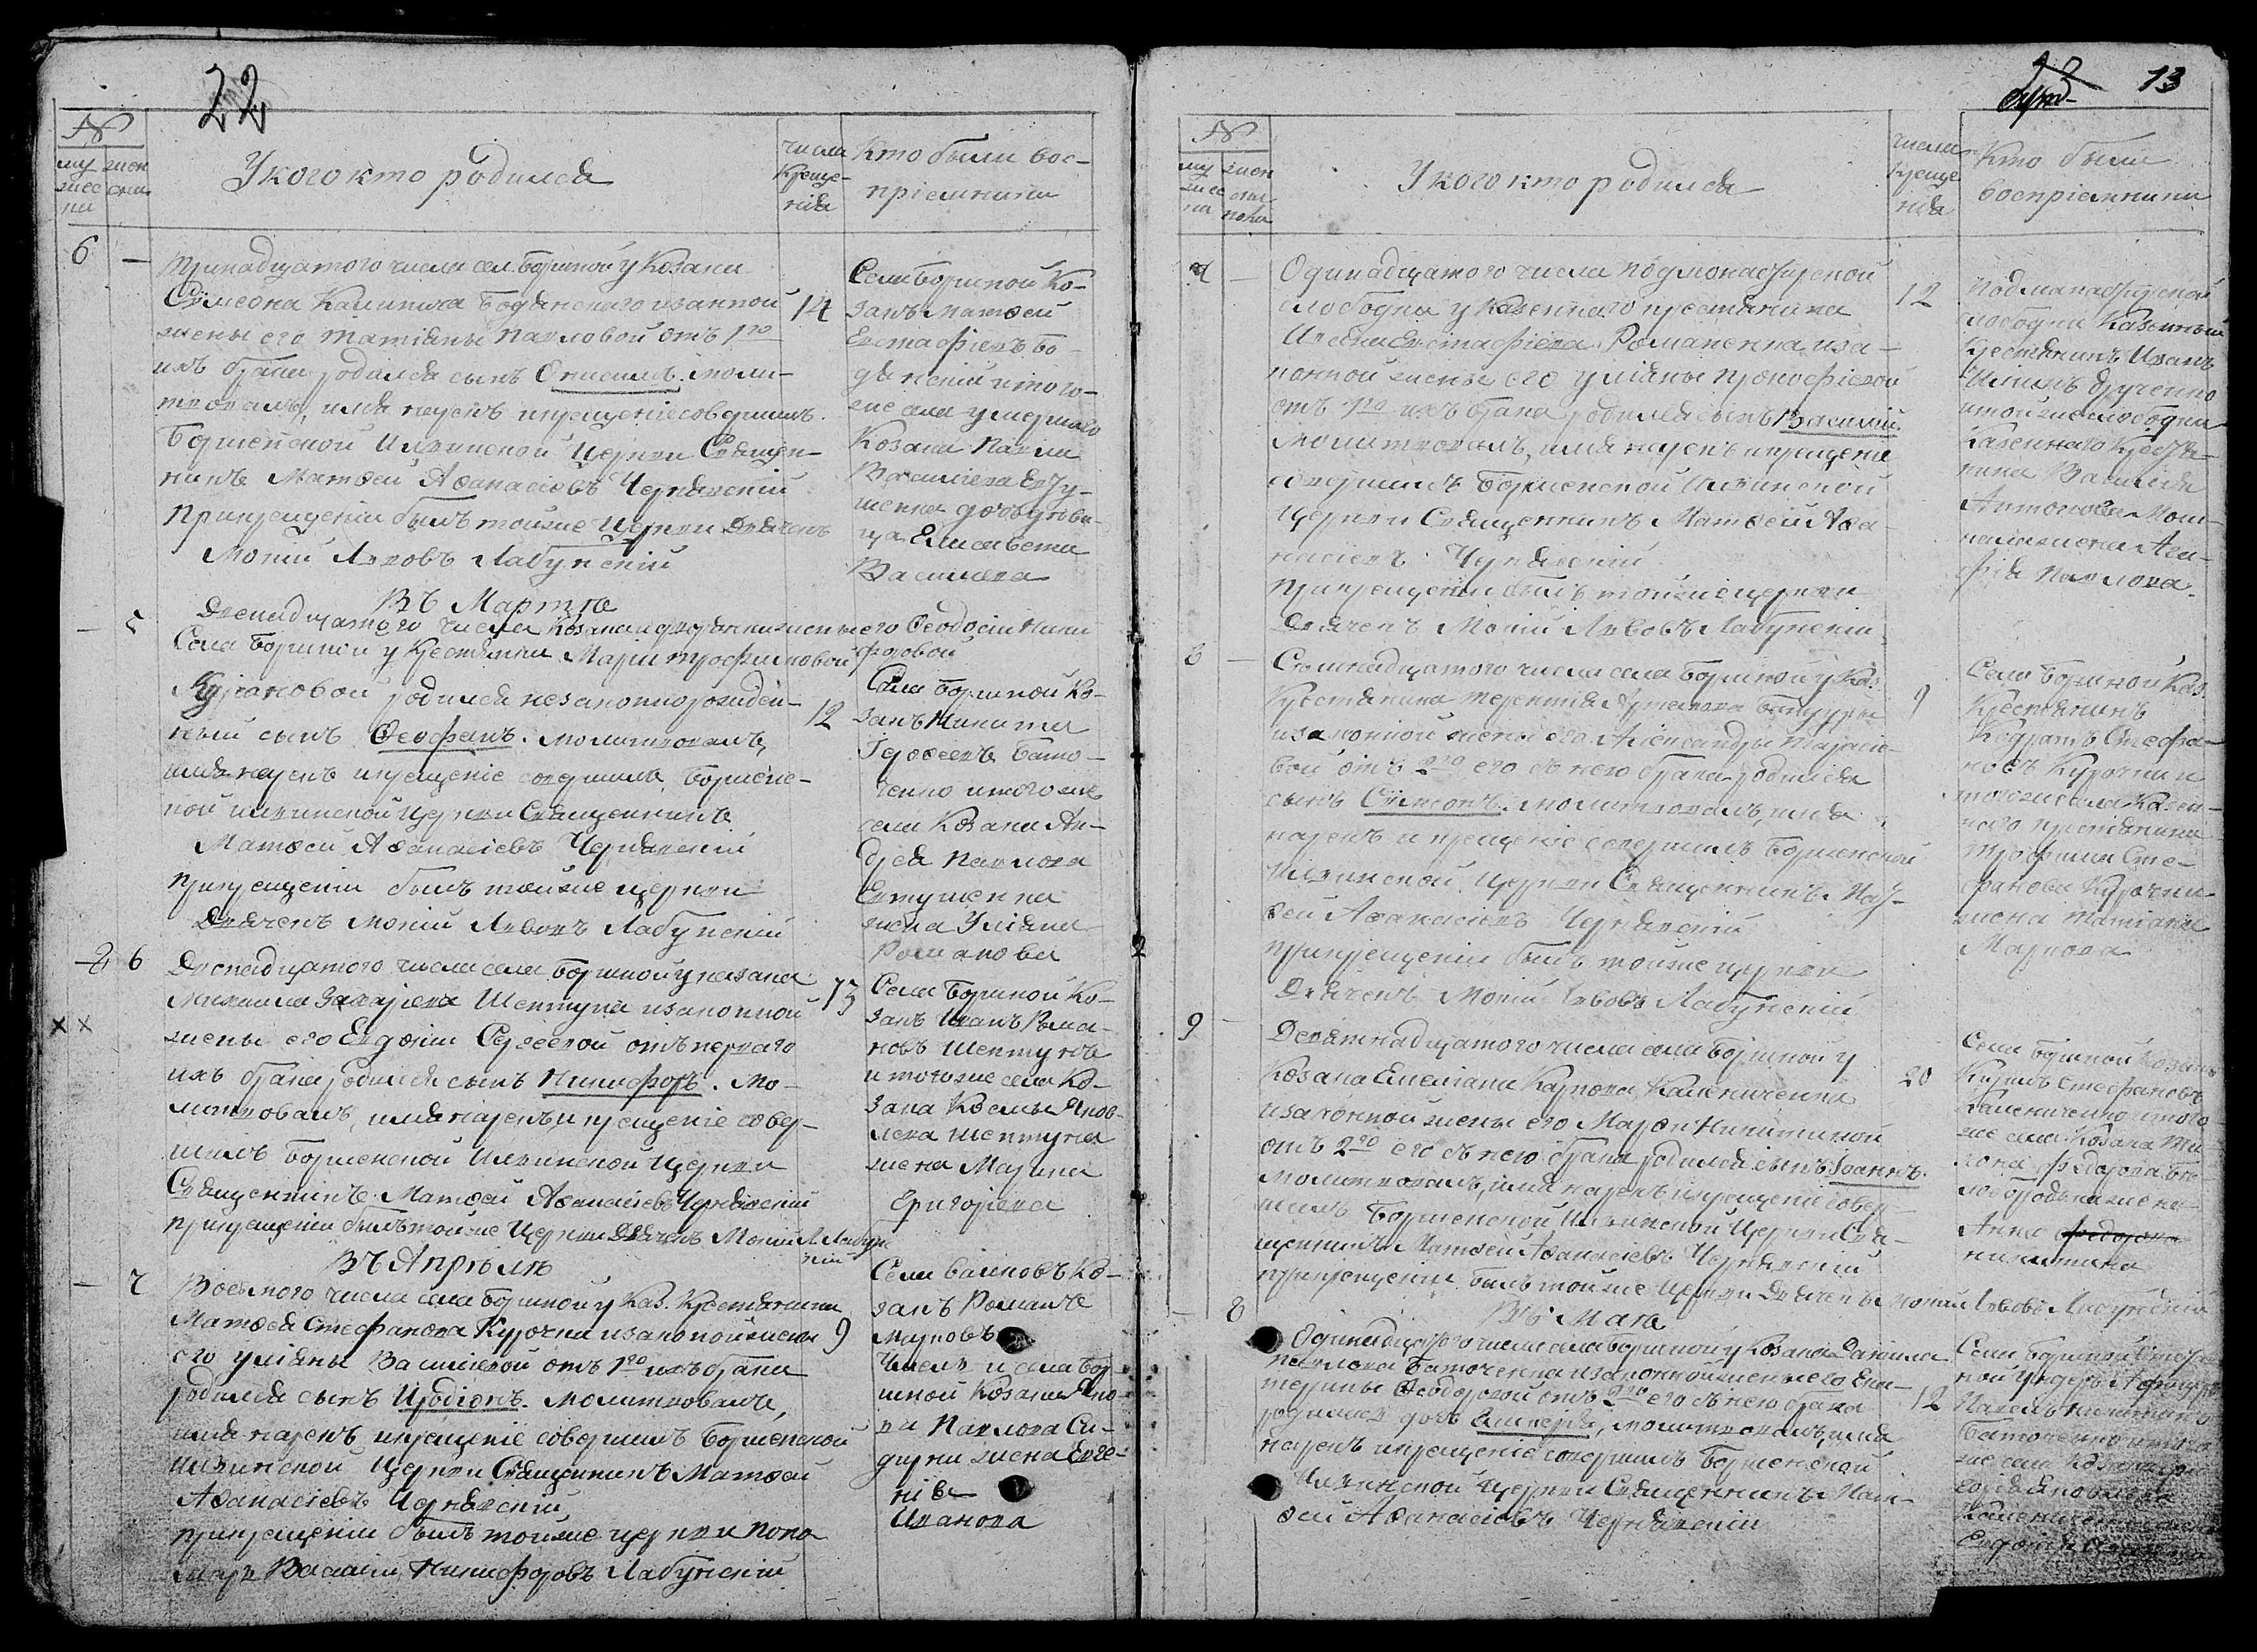 22
№
му
жес
ка
жен
ска
У кого кто родился
числа
Креще-
нія
Кто были вос-
пріемники
6 —
Тринадцатого числа сел. Боршной у Козака
Сѵмеона Калитина Бодянского и законной
жены его Татіаны Павловой отъ 1го
ихъ брака родился сынъ Онисимъ. моли-
твовалъ, имя нарекъ и крещеніе совершилъ
Боршенской Илвинской Церкви Священ-
никъ Матѳей Аѳанасіевъ Чернявскій
При крещеніи былъ тойже Церкви Дьячекъ
Мокій Львовъ Лабунскій
14
Села Боршной Ко-
закъ Матѳей
Евстафіевъ Бо-
дянскій и того-
же села умершаго
Козака Павла
Василіева
дочь дѣви-
ца Елисавета
Василіева
Въ Мартѣ
— 5
Двенадцатого числа Козака
жены его Ѳеодосіи Ники
форовой
Села Боршной у Крестьянки Маріи Трофимовой
родился незаконнорожден-
ный сынъ Ѳеофанъ. молитвовалъ,
имя нарекъ и крещеніе совершилъ, Борщенс-
кой Илвинской Церкви Священникъ
Матѳей Аѳанасіевъ Чернявскій
При крещеніи былъ тойже церкви
Дьячекъ Мокій Львовъ Лабунскій
12
Села Боршной Ко-
закъ Никита
Бато-
ченко и того же
села Козака Ан-
дрея Павлова
Евтушенка
жена Уліяна
Романова
6
Двенадцатого числа села Боршной у козака
Михаила Захаріева Шептуна и законной
жены его Евдокіи Сергѣевой отъ перваго
ихъ брака родился сынъ Никифоръ. Мо-
литвовалъ, имя нарекъ, и крещеніе совер-
шилъ Борщенской Илвинской Церкви
Священникъ Матѳей Аѳанасіевъ Чернявскій
При крещеніи былъ тойже Церкви Дьячекъ Мокій Л. Лабун
скій
13
Села Боршной Ко-
закъ Иванъ Рома-
новъ Шептунъ
и того же села Ко-
зака Космы Яков-
лева Шептуна
жена Марина
Григорева
х х
Въ Апрѣлѣ
— 7
Восьмого числа села Боршной у Каз. Крестьянина
Матѳея Стефанова Курочки и законной жены
его Уліяны Василіевой отъ 1го ихъ брака
родился сынъ Иродіонъ. молитвовалъ,
имя нарекъ и крещеніе совершилъ Борщенской
Илвинской Церкви Священникъ Матѳей
Аѳанасіевъ Чернявскій
при крещеніи былъ тойже церкви поно
марь Василій Никифоровъ Лабунскій
9
Села Ко-
закъ Романъ
Марковъ
и села Бор-
шной Козака Яко-
ва Павлова Си-
дирки жена Евге-
нія
Иванова
13
№
му
жес
ка
жен
ска
пола
У кого кто родился
числа
Креще
нія
Кто были
воспріемники
7 —
Одинадцатого числа подмонастырской
слободки у Казеннаго крестьянина
Ивана Евстафіева Романенка и за-
конной жены его Уліяны Прокофіевой
отъ 1го ихъ брака родился сынъ Василій.
Молитвовалъ, имя нарекъ и крещеніе
совершилъ Борщенской Илвинской
Церкви Священникъ Матѳей Аѳа
насіевъ Чернявскій
При крещеніи былъ тойже церкви
Дьячекъ Мокій Львовъ Лабунскій
12
Подманастырской
слободки Казенный
Крестьянинъ Иванъ
и тойже слободки
Казеннаго Кресть-
янина Василія
Антонова
жена Ага-
фія Павлова.
8 —
Семнадцатого числа села Боршной у Каз.
Крестьянина Терентія
и законной жены его Александры Тарасіе-
вой отъ 2го его съ нею брака родился
сынъ Сѵмеонъ. молитвовалъ, имя
нарекъ и крещеніе совершилъ Борщенской
Илвинской Церкви Священникъ Мат-
ѳей Аѳанасіевъ Чернявскій
при крещеніи былъ тойже церкви
Дьячекъ Мокій Львовъ Лабунскій
9
Села Боршной Каз.
Крестьянинъ
Кодратъ Стефа-
новъ Курочка и
того же села Казен-
наго крестьянина
Трофима Сте-
фанова Курочки
жена Татіана
Маркова
9 —
Девятнадцатого числа села Боршной у
Козака Емеліана Карпова Калениченка
и законной жены его Марѳы Никитиной
отъ 2го его съ нею брака родился сынъ Іоаннъ.
молитвовалъ, имя нарекъ и крещеніе совер-
шилъ Борщенской Илвинской Церкви Свя-
щенникъ Матѳей Аѳанасіевъ Чернявскій
при крещеніи былъ тойже Церкви Дьячекъ Мокій Львовъ Лабунскій
20
Села Боршной Козакъ
Стефановъ
Каленыченко и того
же села Козака
Федорова
жена
Анна Федорова
Никитина
Въ Маѣ
— 8
Одинадцатого числа села Боршной у Козака Даніила
Павлова Баточенка и законной жены его Ека-
терины Ѳеодоровой отъ 2го его съ нею брака
родилася дочь Гликерія, молитвовалъ, имя
нарекъ и крещеніе совершилъ Борщенской
Илвинской Церкви Священникъ Мат-
ѳей Аѳанасіевъ Чернявскій
12
Села Боршной
Павелъ Никитинъ
Баточенко и того
же села
Евдокія